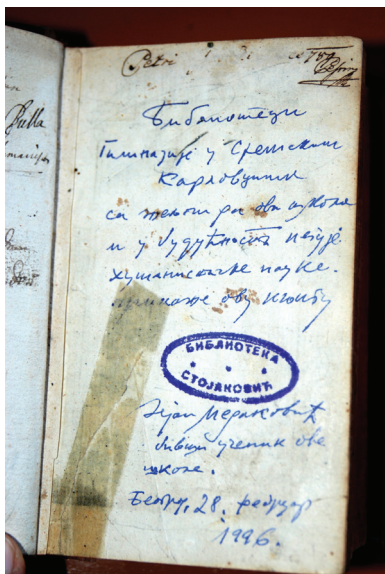 Petri
Библиотеци
Гимназије у Сремским
Карловцима
са жељом да ова школа
и у будућности негује
хуманистичке науке.
ову књигу
БИБЛИОТЕКА
СТОЈАКОВИЋ
Дејан Медаковић
бивши ученик ове
школе.
Београд, 28. фебруар
1996.